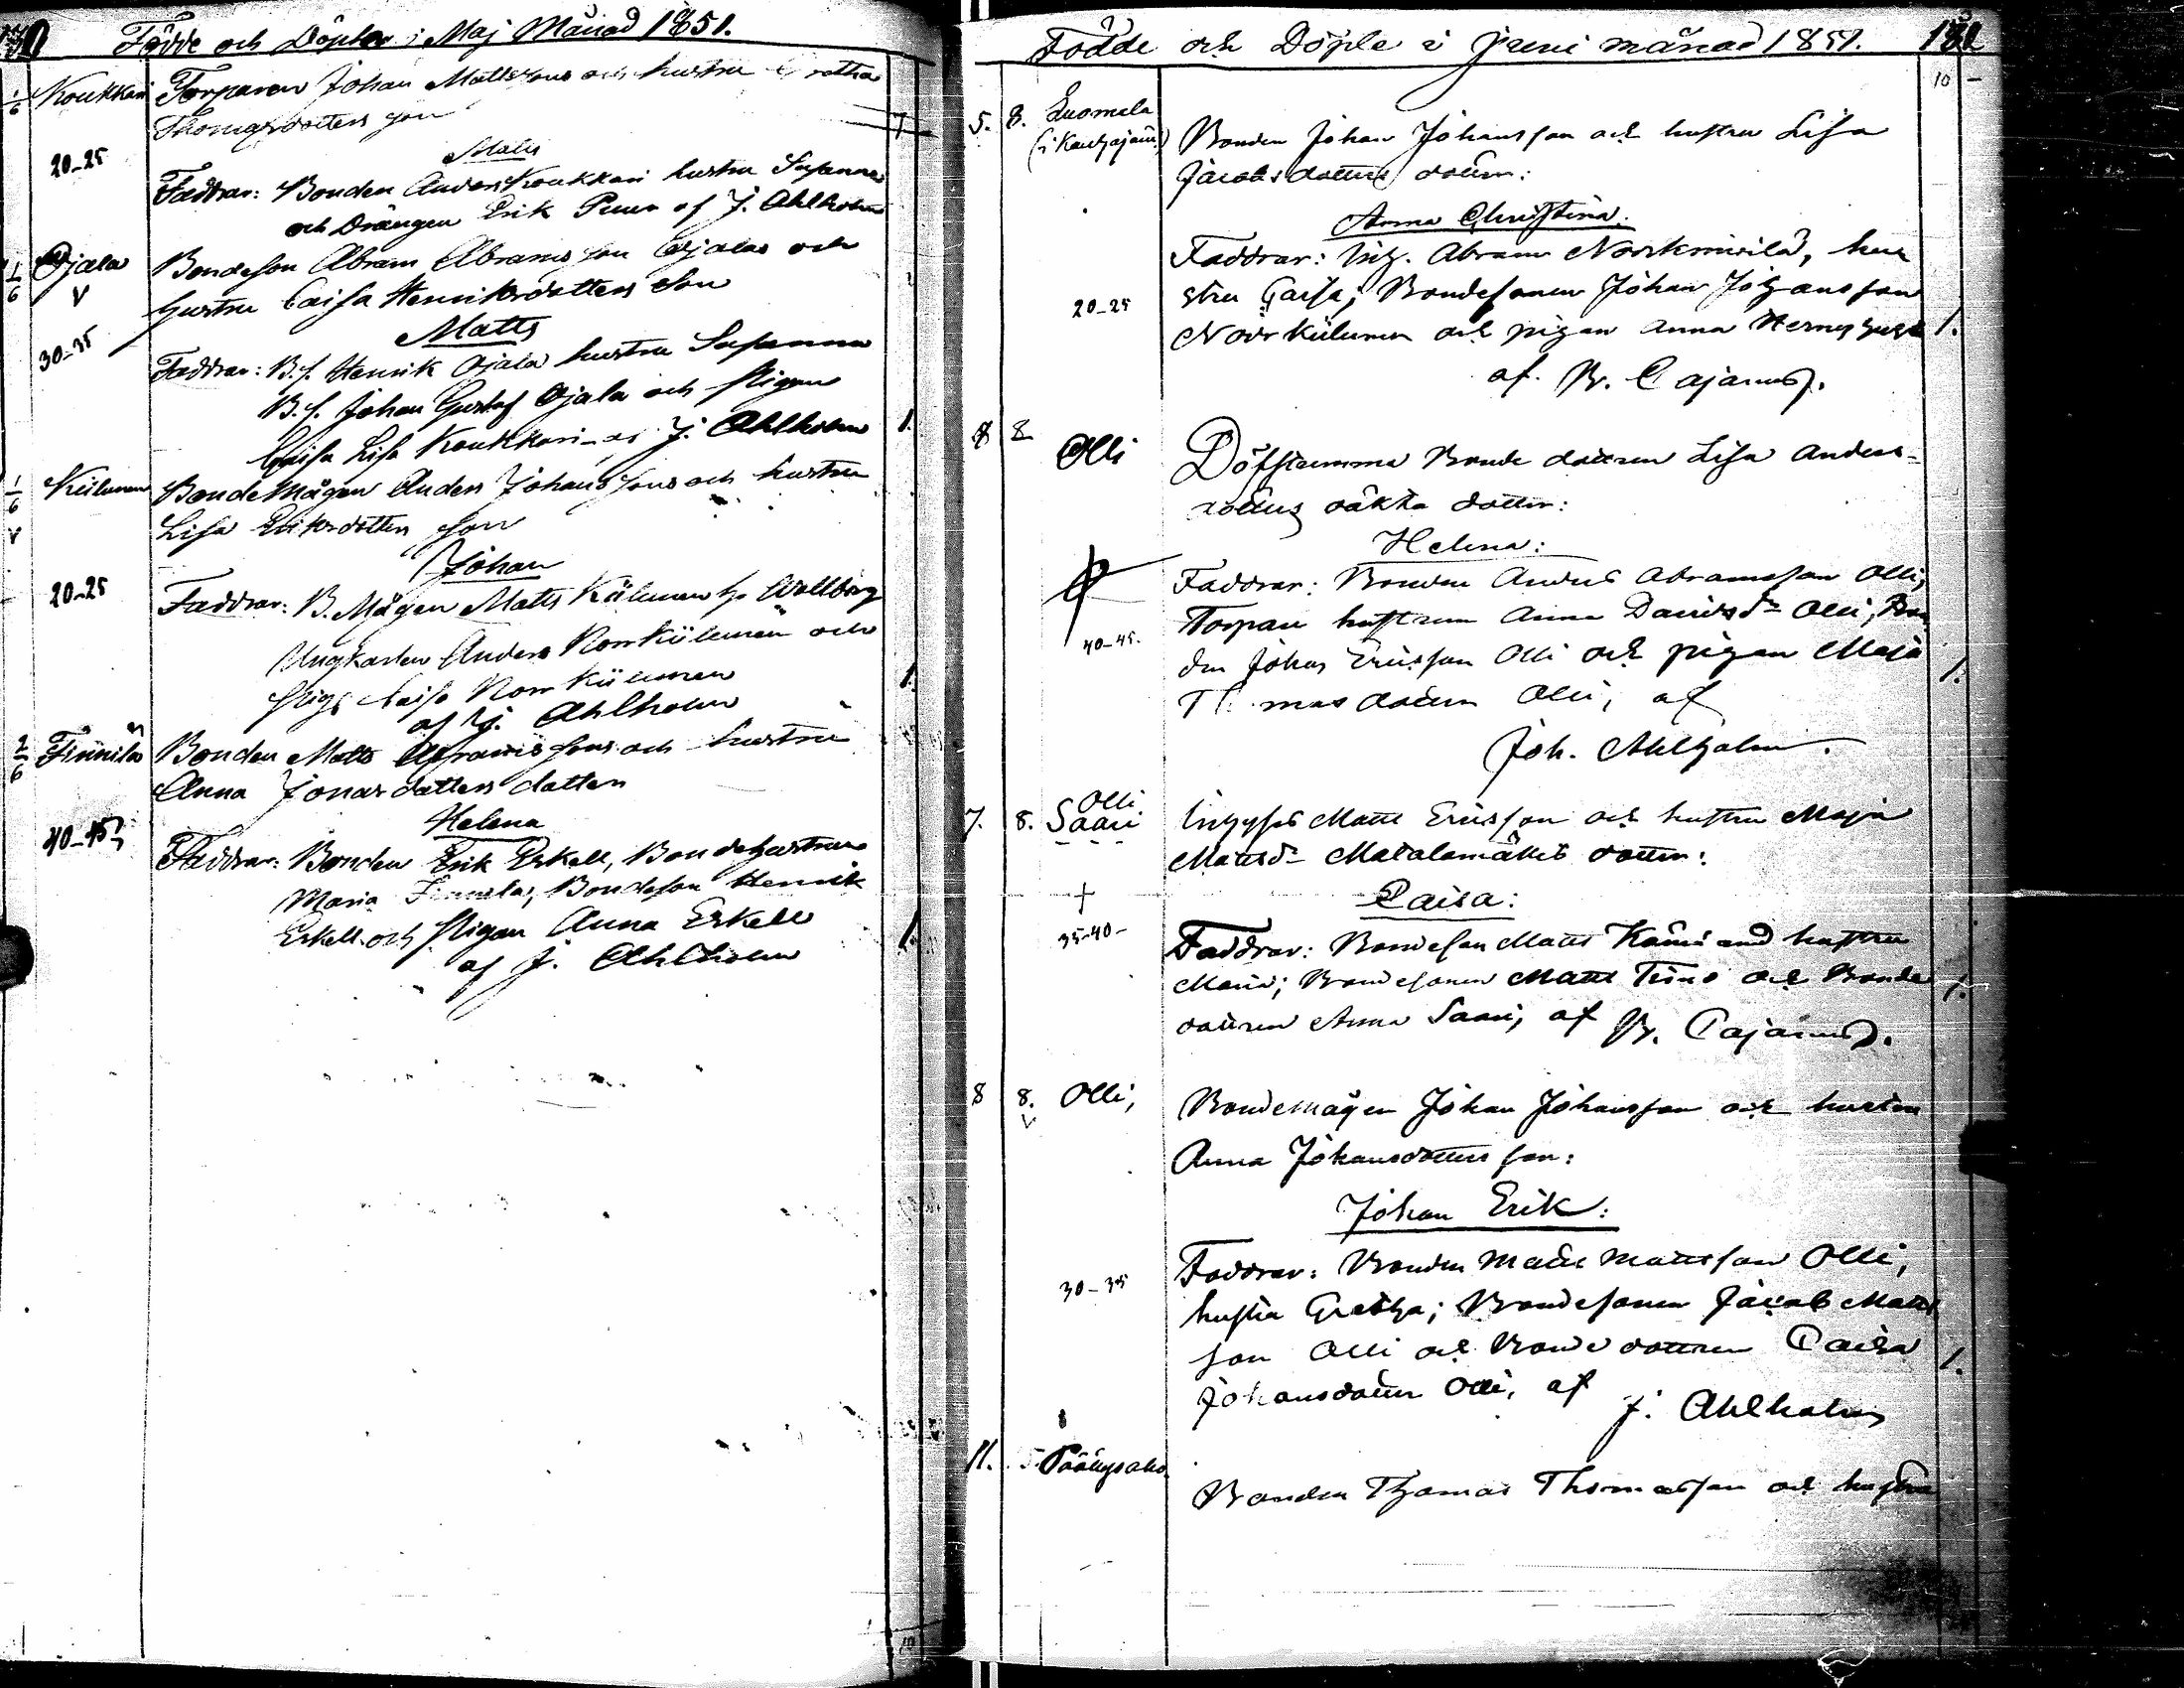 Födde och Döpta i Maj Månad 1851.
1/6 Koukkari Torparen Johan Mattssons och hustru Gretha
Thomasdotters son
20-25 Matts
Faddrar: Bonden Anders Koukkari hustru Susanna
och Drängen Erik Puur af J. Ahlholm
1/6 Ojala Bondeson Abram Abramsson Ojalas och
V hustru Caisa Henriksdotters Son
Matts
30-35 Faddrar: B.s. Henrik Ojala hustru Susanna
B.s. Johan Gustaf Ojala och Pigan
Caisa Lisa Koukkari af J. Ahlholm 1.
1/6 Kiilunen Bondemågen Anders Johanssons och hustru
v Lisa Eriksdotters Son
Johan
20-25 Faddrar: B. Mågen Matts Kiilunen h. Wallborg
Ungkarlen Anders Norrkiilunen och
Pig. Caisa Norrkiilunen 1.
af J. Ahlholm
2/6 Finnilä Bonden Matts Abramssons och hustru
Anna Jonasdotters dotter
Helena
40-45 Faddrar: Bonden Erik Eskell, Bondehustrun
Maria Finnila, Bondeson Henrik
Eskell och Pigan Anna Eskell 1.
af J. Ahlholm
Födde och Döpte i Juni månad 1851. 181
10 -
5. 8. Luomela
(i Kaustajärvi) Bonden Johan Johansson och hustru Lisa
Jacobsdotters dotter:
Anna Christina.
Faddrar: Abram Norrkniivilä, hu
stru Caisa; Bondesonen Johan Johansson
20-25 Norrkiilunen och pigan Anna 1.
af. B. Cajanus.
8 8 Olli Döfstumma Bonde dottren Lisa Anders-
dotters oäkta dotter:
Helena:
Faddrar: Bonden Anders Abramsson Olli,
40-45. Torpare hustrun Anna Danielsdr Olli, Bon
den Johan Ericsson Olli och pigan Maja
Thomasdotter Olli, af 1.
Joh. Ahlholm.
7. 8. Olli
Saari Matts Ericsson och hustru Maja
Mattsdr Matalamäkis dotter:
Caisa:
35-40- Faddrar: Bondeson Matts hustru
Maria; Bondesonen Matts och Bonde 1.
dottren Anna Saari, af B. Cajanus.
8 8. Olli, Bondemågen Johan Johansson och hustru
v. Anna Johansdotters son:
Johan Erik:
Faddrar: Bonden Matts Mattsson Olli,
30-35 hustru Gretha; Bondesonen Jacob Matts
son Olli och Bonde dottren Caisa 1.
Johansdotter Olli, af
J. Ahlholm
11. Pääkysaho
Bonden Thomas Thomasson och hustru